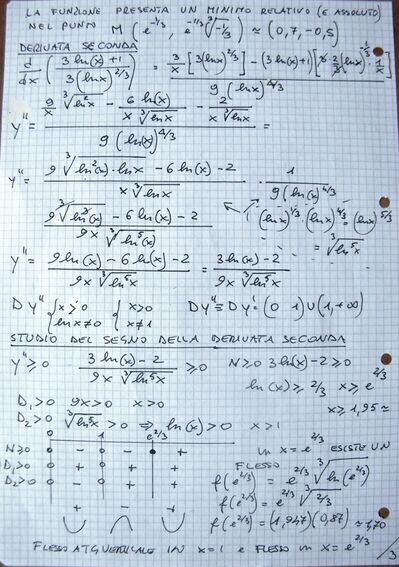 LA FUNZIONE PRESENTA UN MINIMO RELATIVO (E ASSOLUTO)
NEL PUNTO M (e^{-1/3}, e^{-1/3} ∛(-1/3)) ≈ (0,7, -0,5)
DERIVATA SECONDA
d/dx ((3 ln(x) + 1) / (3 (ln x)^{2/3})) = 3/x [3(ln x)^{2/3}] - (3 ln(x)+1)[3 · 2/3 (ln x)^{-1/3} · 1/x]
9 (ln x)^{4/3}
y'' = (9/x ∛(ln²x) - 6 ln(x) / (x ∛(ln x)) - 2 / (x ∛(ln x))) / (9 (ln x)^{4/3}) =
y'' = (9 ∛(ln²(x)) · ∛(ln x) - 6 ln(x) - 2) / (x ∛(ln x)) · 1 / (9 (ln x)^{4/3})
(9 ∛(ln³(x)) - 6 ln(x) - 2) / (9x ∛(ln⁵(x))) (ln x)^{1/3} · (ln x)^{4/3} = (ln x)^{5/3}
= ∛(ln⁵x)
y'' = (9 ln(x) - 6 ln(x) - 2) / (9x ∛(ln⁵x)) = (3 ln(x) - 2) / (9x ∛(ln⁵x))
D y'' { x > 0 { x > 0 D y'' ≡ D y' = (0 1) ∪ (1, +∞)
ln x ≠ 0 x ≠ 1
STUDIO DEL SEGNO DELLA DERIVATA SECONDA
y'' ≥ 0 (3 ln(x) - 2) / (9x ∛(ln⁵x)) ≥ 0 N ≥ 0 3 ln(x) - 2 ≥ 0
ln(x) ≥ 2/3 x ≥ e^{2/3}
D₁ > 0 9x > 0 x > 0 x ≥ 1,95 ≈
D₂ > 0 ∛(ln⁵x) > 0 ⇒ ln(x) > 0 x > 1
0 1 e^{2/3}
N ≥ 0 - - +
D₁ > 0 + + +
D₂ > 0 - + +
+ - +
IN x = e^{2/3} ESISTE UN
FLESSO
f(e^{2/3}) = e^{2/3} ∛(ln(e^{2/3}))
f(e^{2/3}) = e^{2/3} ∛(2/3)
f(e^{2/3}) = (1,947)(0,87) ≈ 1,70
FLESSO A TG VERTICALE IN x = 1 E FLESSO IN x = e^{2/3}
/3